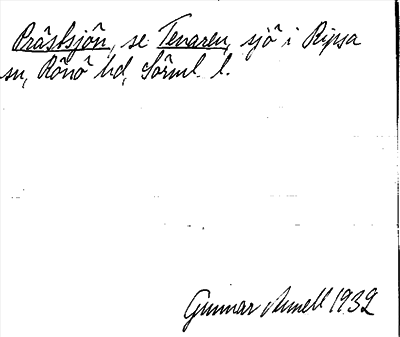 Prästsjön, se Tenaren, sjö i Ripsa
sn, Rönö hd, Sörml. l.
Gunnar 1932